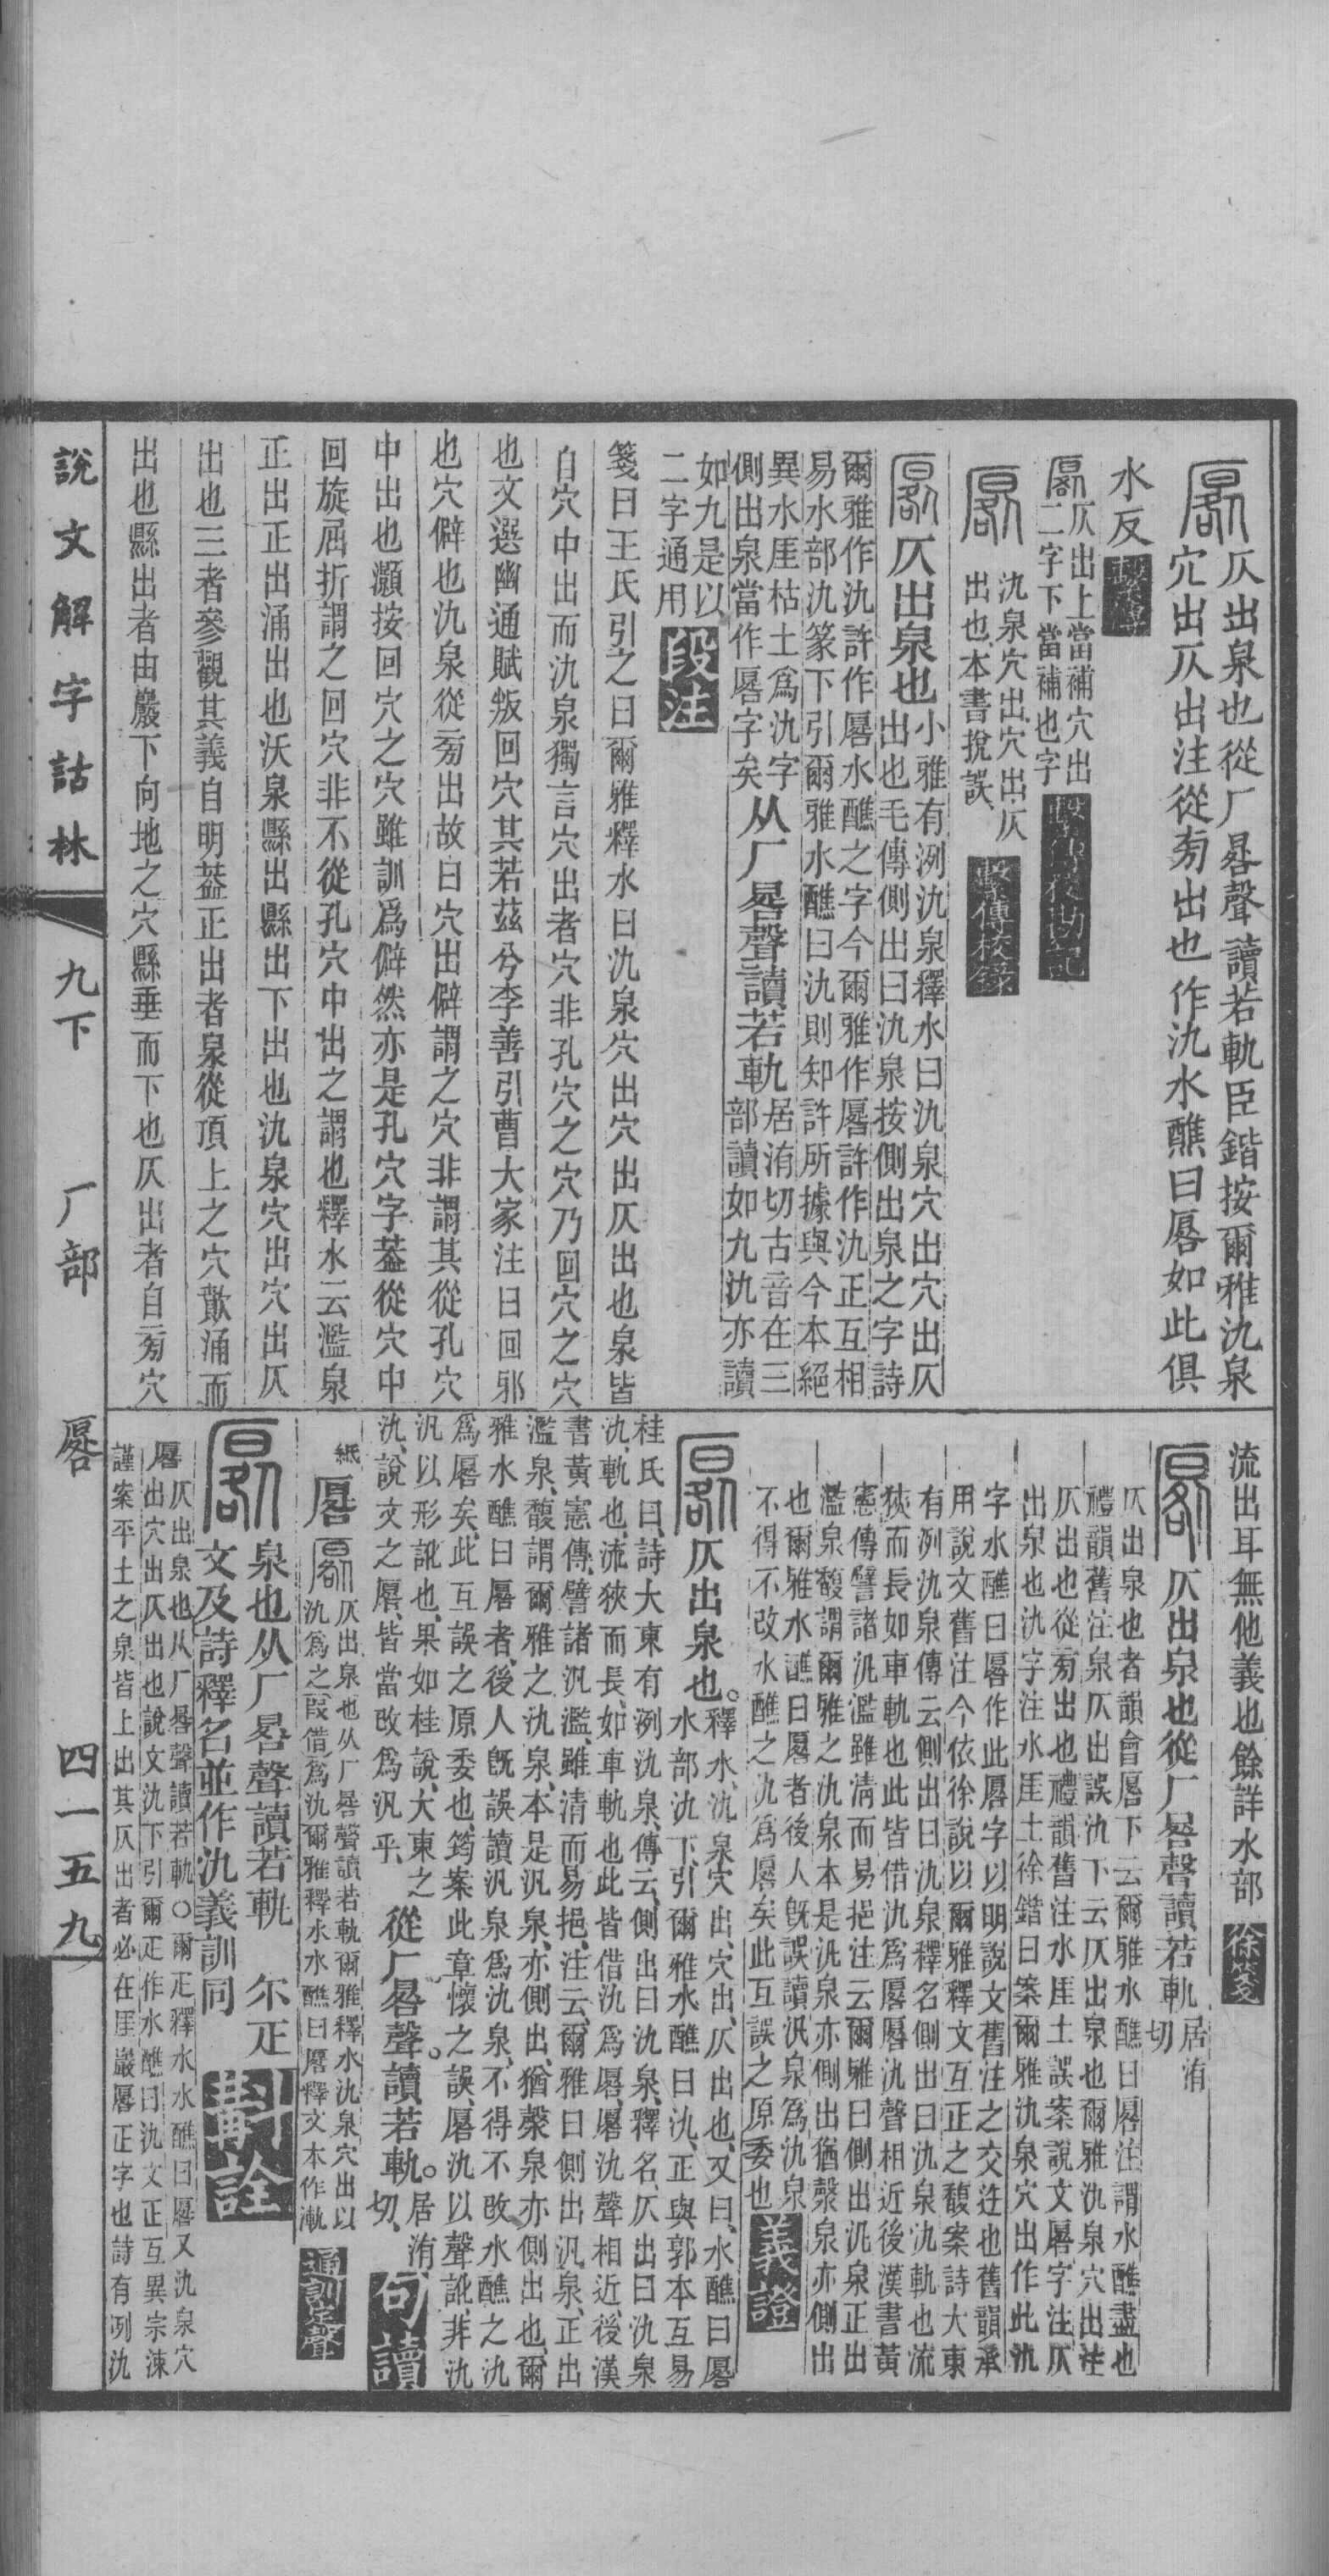 仄出泉也從厂晷聲讀若軌臣鍇按爾雅氿泉
穴出仄出注從菊出也作氿水醮曰厬如此俱
水反 繫傳
厬仄出上當補穴出
二字下當補也字 繫傳校勘記
氿泉穴出穴出仄
出也本書挩誤 繫傳校錄
仄出泉也
小雅有洌氿泉釋水曰氿泉穴出穴出仄
出也毛傳側出曰氿泉按側出泉之字詩
爾雅作氿許作厬水醮之字今爾雅作厬許作氿正互相
易水部氿篆下引爾雅水醮曰氿則知許所據與今本絕
異水厓枯土爲氿字
側出泉當作厬字矣
从厂晷聲讀若軌
居洧切古音在三
部讀如九氿亦讀
如九是以
二字通用 段注
箋曰王氏引之曰爾雅釋水曰氿泉穴出穴出仄出也泉皆
自穴中出而氿泉獨言穴出者穴非孔穴之穴乃回穴之穴
也文選幽通賦叛回穴其若茲兮李善引曹大家注曰回邪
也穴僻也氿泉從菊出故曰穴出僻謂之穴非謂其從孔穴
中出也灝按回穴之穴雖訓爲僻然亦是孔穴字葢從穴中
回旋屈折謂之回穴非不從孔穴中出之謂也釋水云濫泉
正出正出涌出也沃泉縣出縣出下出也氿泉穴出穴出仄
出也三者參觀其義自明葢正出者泉從頂上之穴歕涌而
出也縣出者由巖下向地之穴縣垂而下也仄出者自菊穴
流出耳無他義也餘詳水部 徐箋
仄出泉也從厂晷聲讀若軌
居洧
切
仄出泉也者韻會厬下云爾雅水醮曰厬注謂水醮盡也
禮韻舊注泉仄出誤氿下云仄出泉也爾雅氿泉穴出注
仄出也從菊出也禮韻舊注水厓土誤案說文厬字注仄
出泉也氿字注水厓土徐鍇曰案爾雅氿泉穴出作此氿
字水醮曰厬作此厬字以明說文舊注之交迕也舊韻承
用說文舊注今依徐說以爾雅釋文互正之馥案詩大東
有洌氿泉傳云側出曰氿泉釋名側出曰氿泉氿軌也流
狹而長如車軌也此皆借氿爲厬厬氿聲相近後漢書黃
憲傳譬諸汎濫雖清而易挹注云爾雅曰側出汎泉正出
濫泉馥謂爾雅之氿泉本是汎泉亦側出猶檃泉亦側出
也爾雅水醮曰厬者後人旣誤讀汎泉爲氿泉
不得不改水醮之氿爲厬矣此互誤之原委也 義證
仄出泉也。
釋水、氿泉穴出、穴出、仄出也、又曰、水醮曰厬
水部氿下、引爾雅水醮曰氿、正與郭本互易
桂氏曰、詩大東有洌氿泉、傳云、側出曰氿泉、釋名、仄出曰氿泉
氿、軌也、流狹而長、如車軌也此皆借氿爲厬、厬氿聲相近、後漢
書黃憲傳、譬諸汎濫、雖清而易挹、注云、爾雅曰側出汎泉、正出
濫泉、馥謂爾雅之氿泉、本是汎泉、亦側出、猶檃泉亦側出也、爾
雅水醮曰厬者、後人旣誤讀汎泉爲氿泉、不得不改水醮之氿
爲厬矣、此互誤之原委也、筠案此章懷之誤、厬氿以聲訛、非氿
汎以形訛也、果如桂說、大東之
氿、說文之厬、皆當改爲汎乎、
從厂晷聲。讀若軌。
居洧
切、 句讀
紙
厬
仄出泉也从厂晷聲讀若軌爾雅釋水氿泉穴出以
氿爲之叚借爲氿爾雅釋水水醮曰厬釋文本作漸 通訓定聲
泉也从厂晷聲讀若軌 尒疋
文及詩釋名並作氿義訓同 斠詮
厬
仄出泉也从厂晷聲讀若軌○爾疋釋水水醮曰厬又氿泉穴
出穴出仄出也說文氿下引爾疋作水醮曰氿文正互異宗涑
謹案平土之泉皆上出其仄出者必在厓巖厬正字也詩有洌氿
說文解字詁林 九下 厂部 厬 四一五九